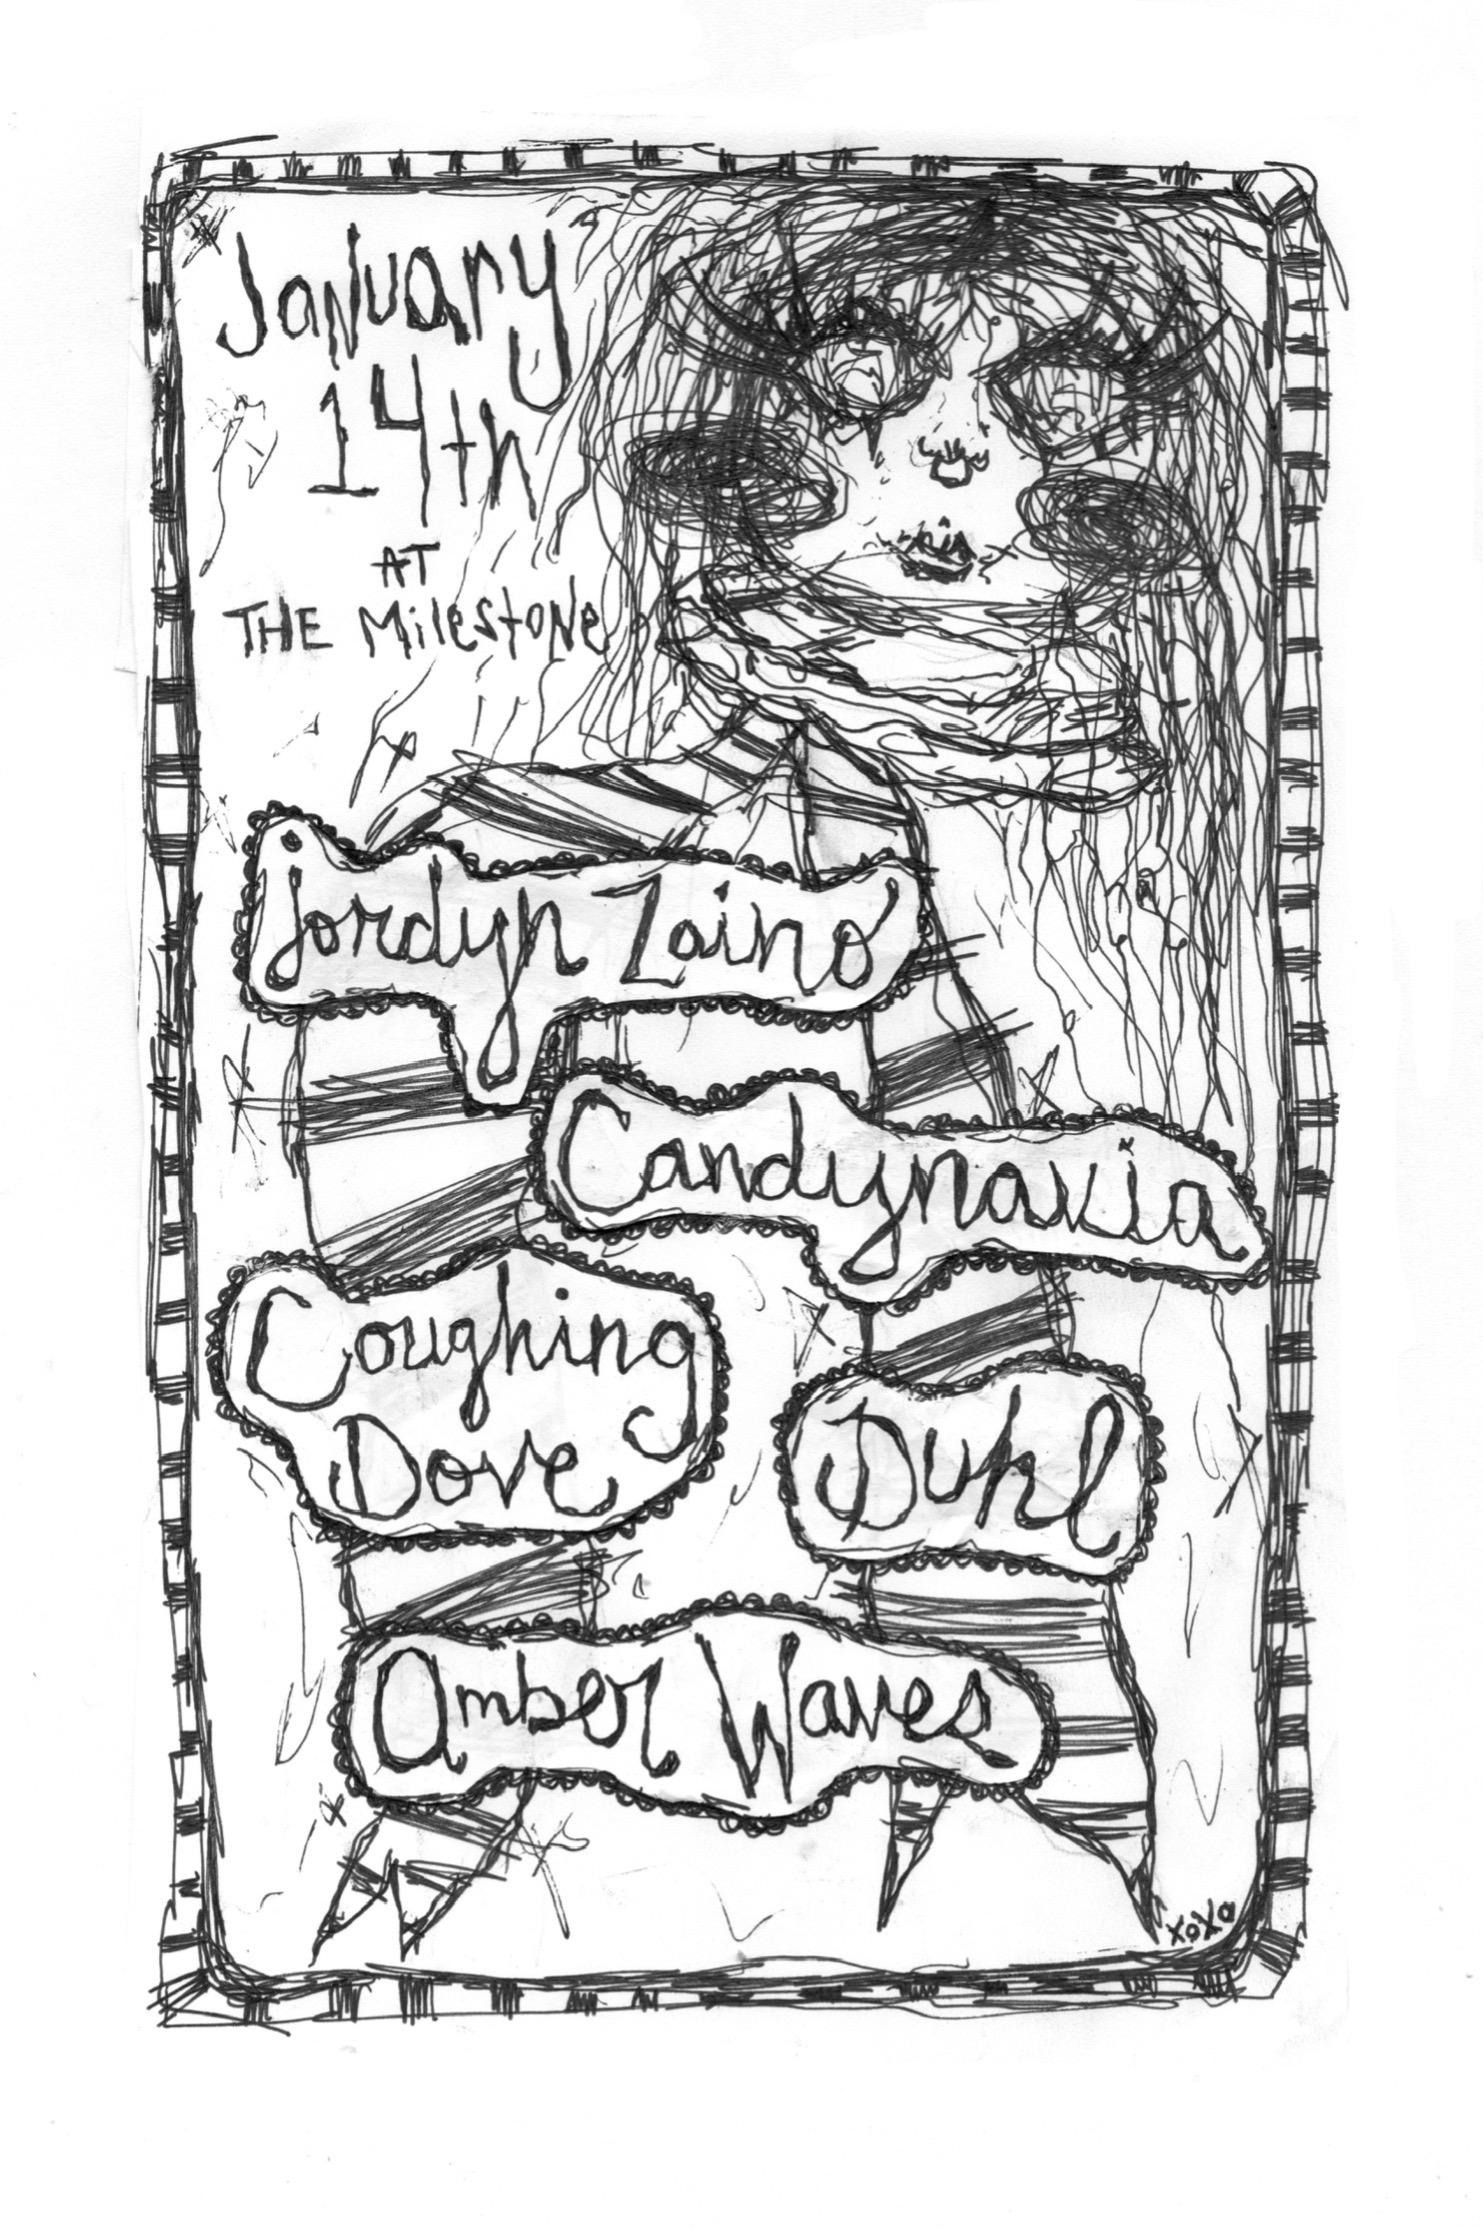 January
14th
AT
THE Milestone
jordyn Zaino
Candynavia
Coughing
Dove
Duhl
Amber Waves
xoxo